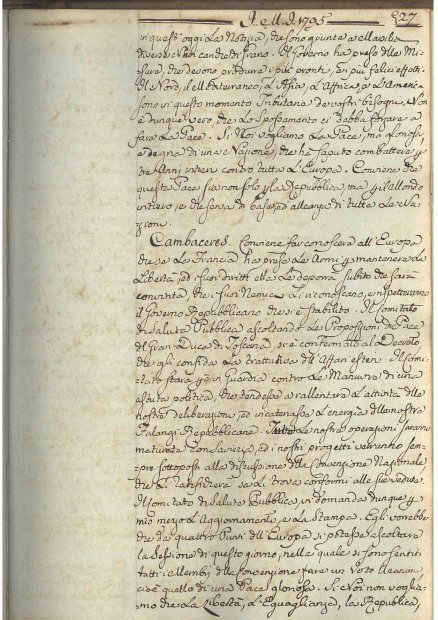 J. M. J. 1795
527
in quest'oggi la Notizia, che sono giunte a Marsilia
diverse Navi cariche di Grano. Il Governo ha preso delle Mi-
sure, che devono produrre i più pronti, ed i più felici effetti.
Il Nord, il Mediterraneo, l'Asia, l'Africa, e l'America
sono in questo momento Tributarie de vostri bisogni. Non
è dunque vero, che lo Spossamento ci debba forzare a
fare la Pace. Si: Noi vogliamo la Pace, ma gloriosa
e degna di una Nazione, che hà saputo combattere p
tre Anni intieri contro tutta l'Europa. Conviene che
questa Pace sia non solo p la Repubblica, ma p il Mondo
intiero, e che serva di base ad alleanza di tutte le Na-
zioni.
Cambaceres. Conviene far conoscere all'Europa
che se la Francia ha prese le Armi p mantenere la
Libertà, ed i suoi diritti ella le deporrà subito che sarà
convinta, che i suoi Nemici li riconoscano, e rispetteranno
il Governo Repubblicano che si è stabilito. Il Comitato
di Salute Pubblica ascoltando le Proposizioni di Pace
del Gran Duca di Toscana, si è conformato al Decreto
che gli confida la trattativa degli Affari esteri. Il Comi-
tato starà p in Guardia contro le Manovre di una
astuta politica, che tendesse a rallentare l'attività delle
nostre deliberazioni, ed incatenasse l'energia delle nostre
Falangi Repubblicane. Le nostre operazioni saranno
maturate con Saviezza, ed i nostri progetti verranno sem-
pre sottoposti alla discussione della Convenzione Nazionale
che li ratificherà se li trova conformi alle sue vedute.
Il Comitato di Salute Pubblica vi domanda dunque p
mio mezzo l'Aggiornamento, e la Stampa. Egli vorrebbe
che da quattro Punti dell'Europa si potesse ascoltare
la Sessione di questo giorno, nella quale si sono sentiti
tutti i Membri della Convenzione fare un Voto
cioè quello di una Pace gloriosa. Se Noi non voglia-
mo che la Libertà, l'Eguaglianza, la Repubblica,